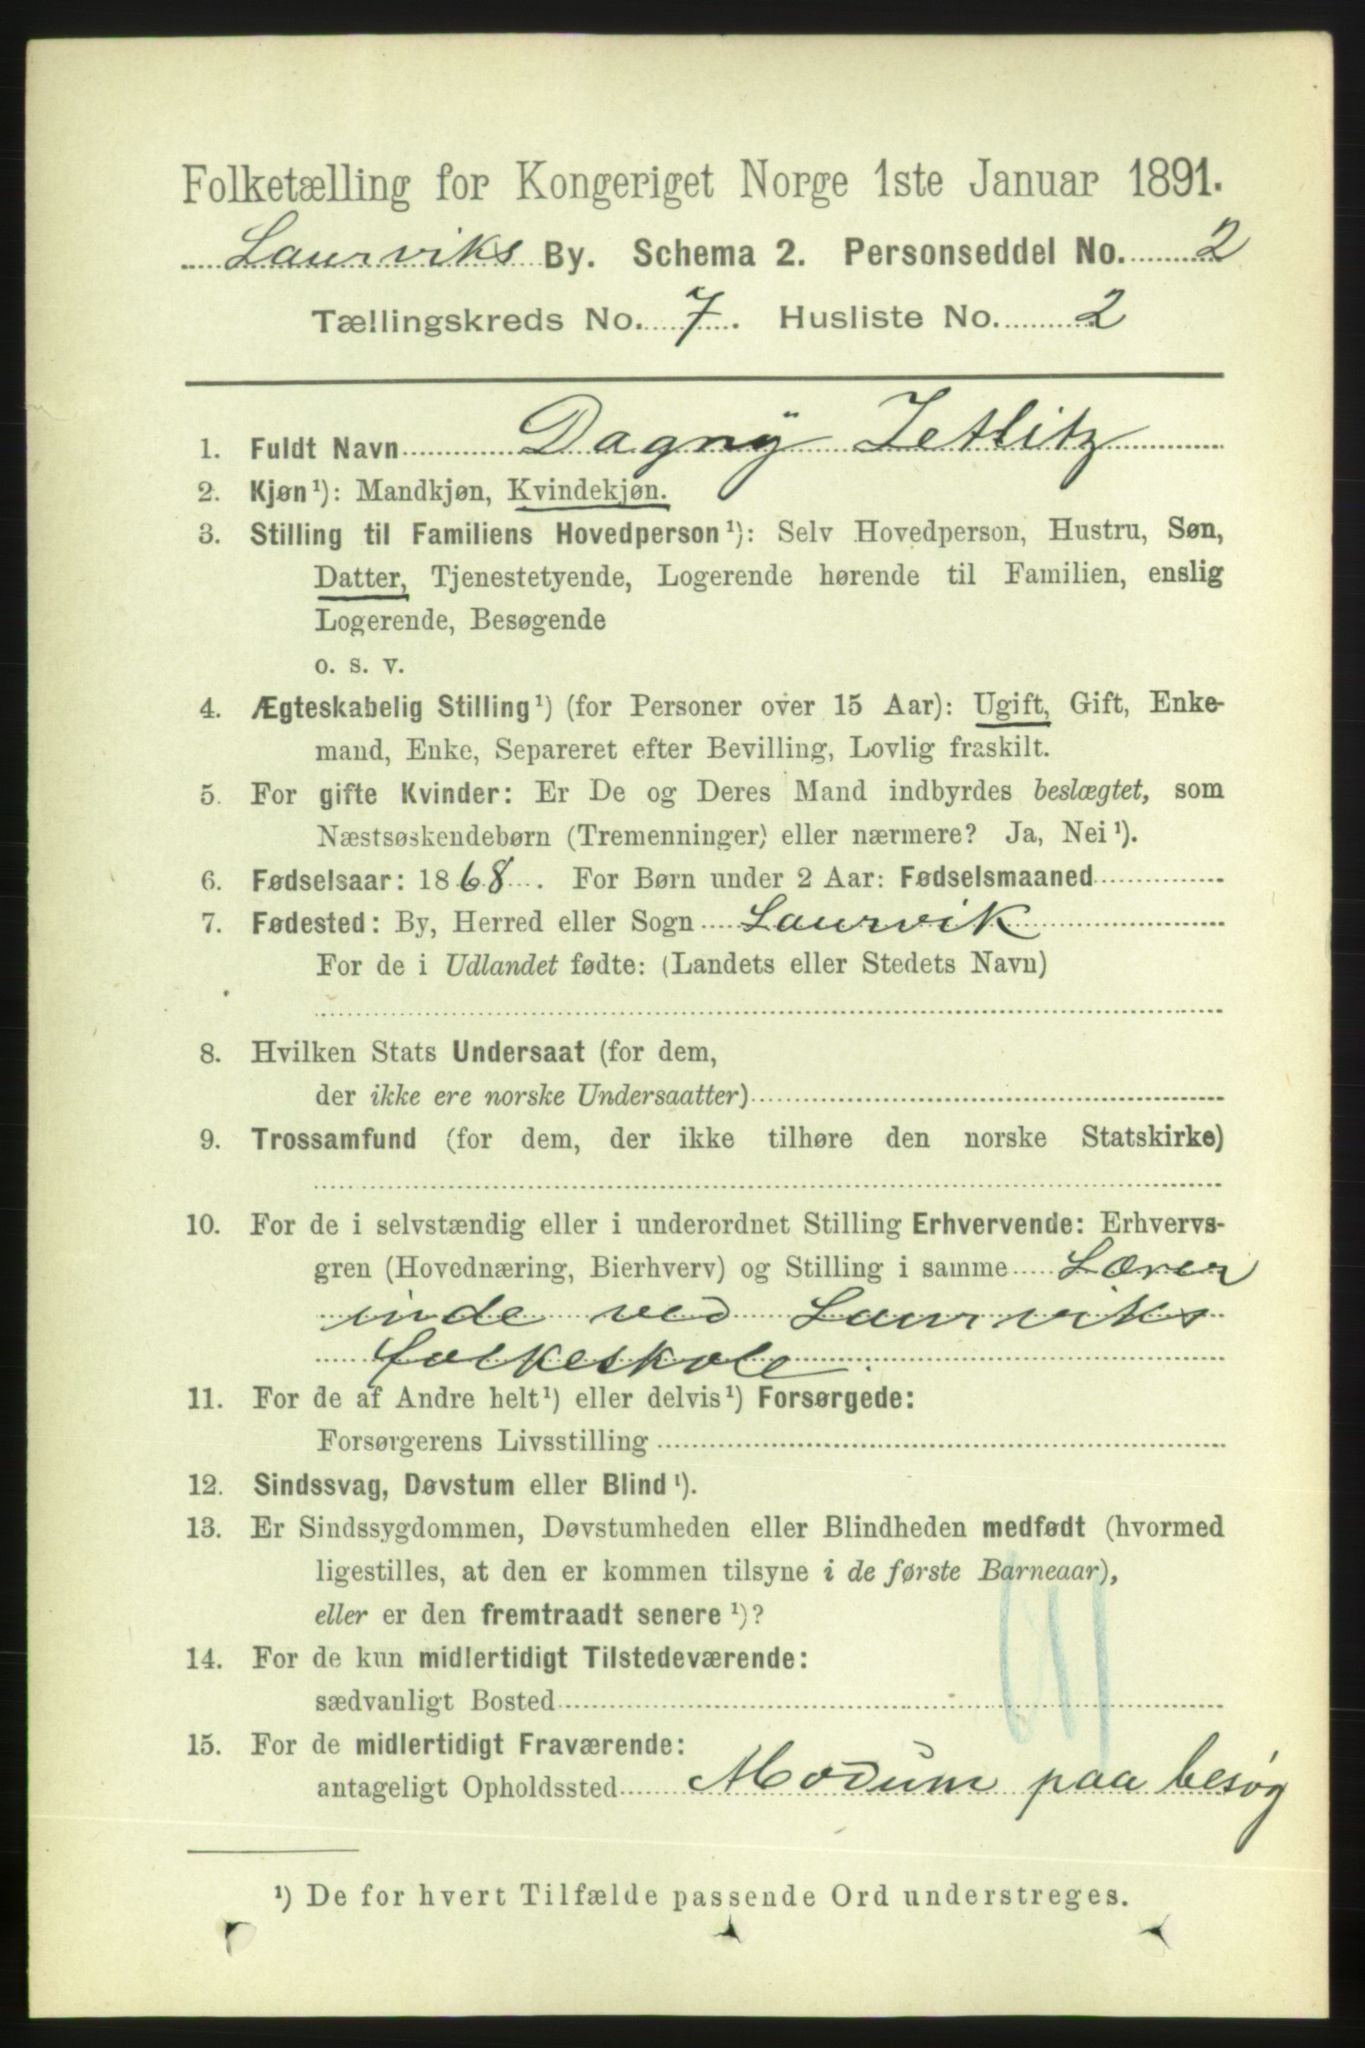 Folketælling for Kongeriget Norge 1ste Januar 1891.
Laurviks By. Schema 2. Personseddel No. 2
Tællingskreds No. 7. Husliste No. 2
1. Fuldt Navn Dagny Zetlitz
2. Kjøn¹): Mandkjøn, Kvindekjøn.
3. Stilling til Familiens Hovedperson¹): Selv Hovedperson, Hustru, Søn,
Datter, Tjenestetyende, Logerende hørende til Familien, enslig
Logerende, Besøgende
o. s. v.
4. Ægteskabelig Stilling¹) (for Personer over 15 Aar): Ugift, Gift, Enke-
mand, Enke, Separeret efter Bevilling, Lovlig fraskilt.
5. For gifte Kvinder: Er De og Deres Mand indbyrdes beslægtet, som
Næstsøskendebørn (Tremenninger) eller nærmere? Ja, Nei¹).
6. Fødselsaar: 1868. For Børn under 2 Aar: Fødselsmaaned
7. Fødested: By, Herred eller Sogn Laurvik
For de i Udlandet fødte: (Landets eller Stedets Navn)
8. Hvilken Stats Undersaat (for dem,
der ikke ere norske Undersaatter)
9. Trossamfund (for dem, der ikke tilhøre den norske Statskirke)
10. For de i selvstændig eller i underordnet Stilling Erhvervende: Erhvervs-
gren (Hovednæring, Bierhverv) og Stilling i samme Lærer
inde ved Laurviks
folkeskole.
11. For de af Andre helt¹) eller delvis¹) Forsørgede:
Forsørgerens Livsstilling
12. Sindssvag, Døvstum eller Blind¹).
13. Er Sindssygdommen, Døvstumheden eller Blindheden medfødt (hvormed
ligestilles, at den er kommen tilsyne i de første Barneaar),
eller er den fremtraadt senere¹)?
14. For de kun midlertidigt Tilstedeværende:
sædvanligt Bosted
15. For de midlertidigt Fraværende:
antageligt Opholdssted Modum paa besøg
¹) De for hvert Tilfælde passende Ord understreges.